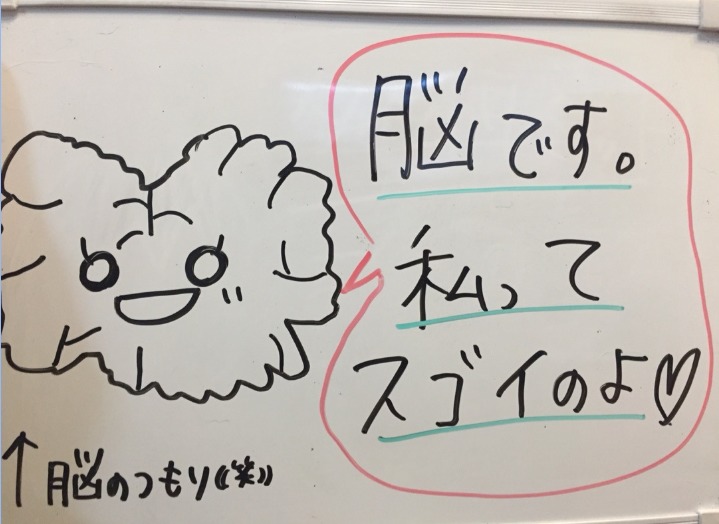 脳です。
私って
スゴイのよ♡
↑脳のつもり((笑))